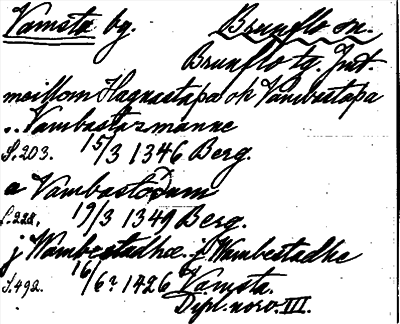 Vamsta bg. Brunflo sn.
Brunflo tg. Jmt.
mellom Hagnastapa ok Vambastapa
.. Vambastazmanne
S. 203. 15/3 1346 Berg.
a Vambastodum
S. 228. 19/3 1349 Berg.
j Wambestadhæ. j Wambestadhe
S. 492. 16/6? 1426 bg Vamsta.
Dipl. norv. III.